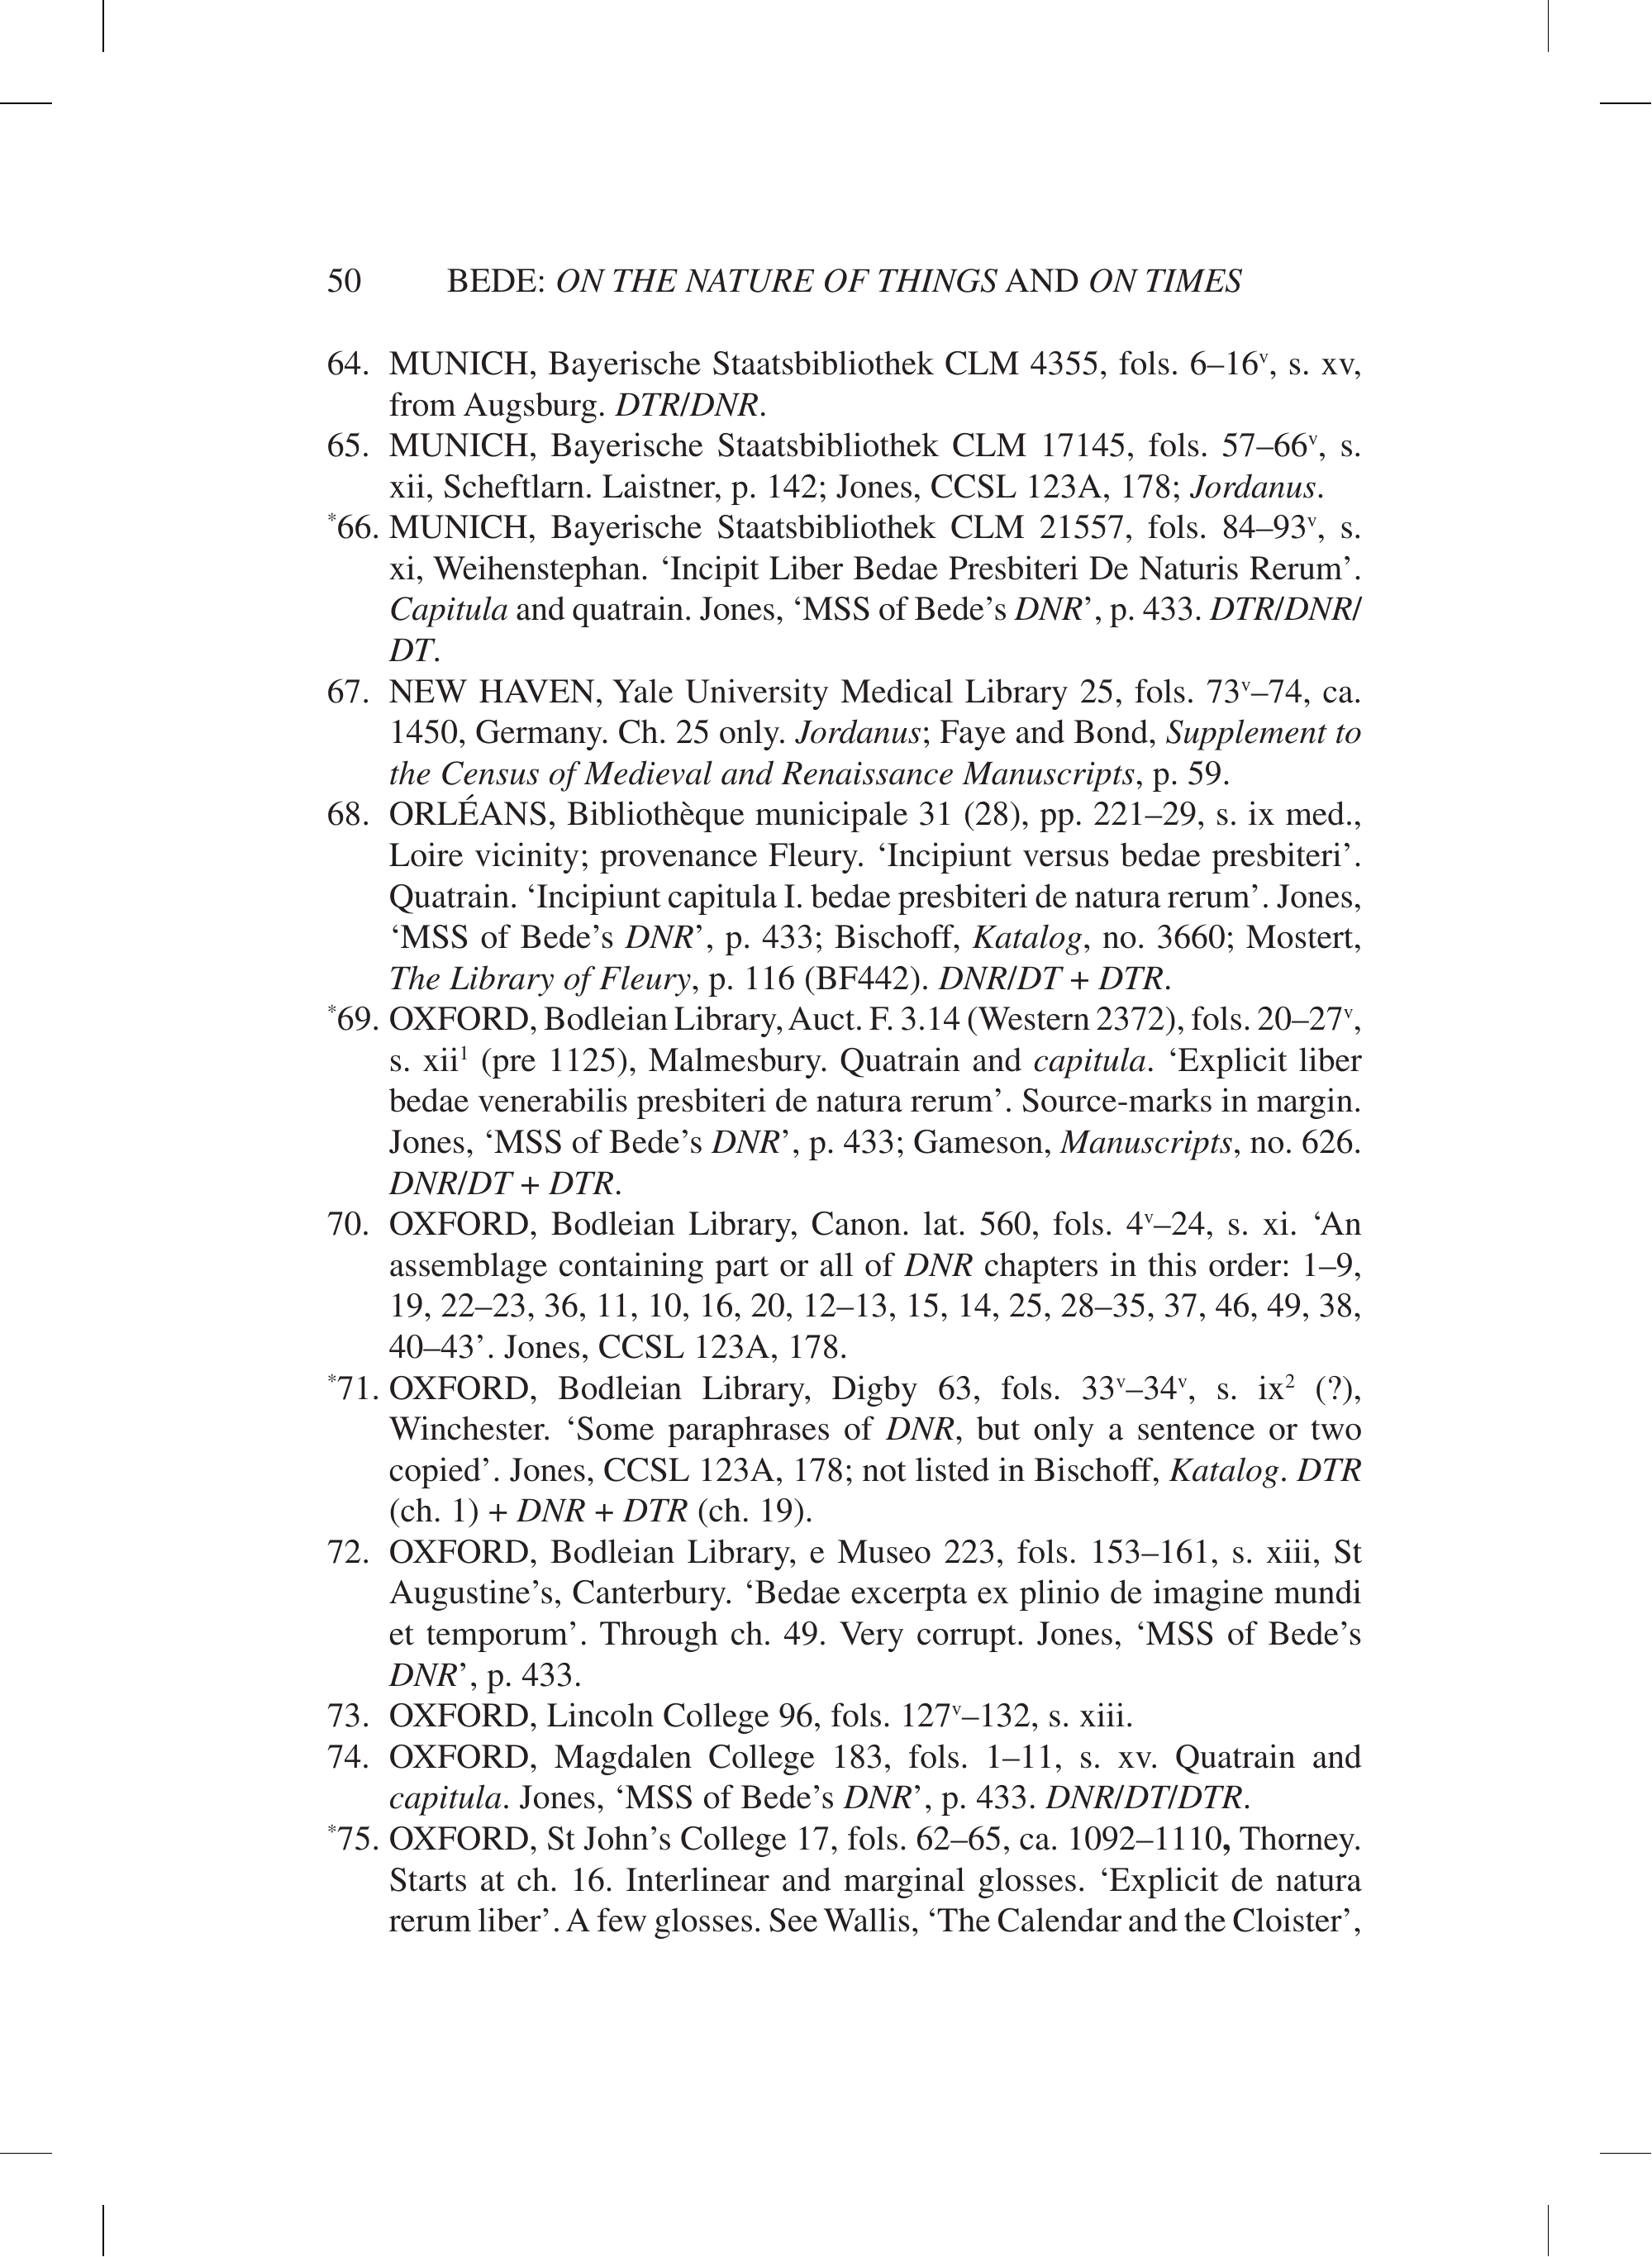 50 BEDE: ON THE NATURE OF THINGS AND ON TIMES
64. MUNICH, Bayerische Staatsbibliothek CLM 4355, fols. 6–16ᵛ, s. xv,
from Augsburg. DTR/DNR.
65. MUNICH, Bayerische Staatsbibliothek CLM 17145, fols. 57–66ᵛ, s.
xii, Scheftlarn. Laistner, p. 142; Jones, CCSL 123A, 178; Jordanus.
*66. MUNICH, Bayerische Staatsbibliothek CLM 21557, fols. 84–93ᵛ, s.
xi, Weihenstephan. ‘Incipit Liber Bedae Presbiteri De Naturis Rerum’.
Capitula and quatrain. Jones, ‘MSS of Bede’s DNR’, p. 433. DTR/DNR/
DT.
67. NEW HAVEN, Yale University Medical Library 25, fols. 73ᵛ–74, ca.
1450, Germany. Ch. 25 only. Jordanus; Faye and Bond, Supplement to
the Census of Medieval and Renaissance Manuscripts, p. 59.
68. ORLÉANS, Bibliothèque municipale 31 (28), pp. 221–29, s. ix med.,
Loire vicinity; provenance Fleury. ‘Incipiunt versus bedae presbiteri’.
Quatrain. ‘Incipiunt capitula I. bedae presbiteri de natura rerum’. Jones,
‘MSS of Bede’s DNR’, p. 433; Bischoff, Katalog, no. 3660; Mostert,
The Library of Fleury, p. 116 (BF442). DNR/DT + DTR.
*69. OXFORD, Bodleian Library, Auct. F. 3.14 (Western 2372), fols. 20–27ᵛ,
s. xii¹ (pre 1125), Malmesbury. Quatrain and capitula. ‘Explicit liber
bedae venerabilis presbiteri de natura rerum’. Source-marks in margin.
Jones, ‘MSS of Bede’s DNR’, p. 433; Gameson, Manuscripts, no. 626.
DNR/DT + DTR.
70. OXFORD, Bodleian Library, Canon. lat. 560, fols. 4ᵛ–24, s. xi. ‘An
assemblage containing part or all of DNR chapters in this order: 1–9,
19, 22–23, 36, 11, 10, 16, 20, 12–13, 15, 14, 25, 28–35, 37, 46, 49, 38,
40–43’. Jones, CCSL 123A, 178.
*71. OXFORD, Bodleian Library, Digby 63, fols. 33ᵛ–34ᵛ, s. ix² (?),
Winchester. ‘Some paraphrases of DNR, but only a sentence or two
copied’. Jones, CCSL 123A, 178; not listed in Bischoff, Katalog. DTR
(ch. 1) + DNR + DTR (ch. 19).
72. OXFORD, Bodleian Library, e Museo 223, fols. 153–161, s. xiii, St
Augustine’s, Canterbury. ‘Bedae excerpta ex plinio de imagine mundi
et temporum’. Through ch. 49. Very corrupt. Jones, ‘MSS of Bede’s
DNR’, p. 433.
73. OXFORD, Lincoln College 96, fols. 127ᵛ–132, s. xiii.
74. OXFORD, Magdalen College 183, fols. 1–11, s. xv. Quatrain and
capitula. Jones, ‘MSS of Bede’s DNR’, p. 433. DNR/DT/DTR.
*75. OXFORD, St John’s College 17, fols. 62–65, ca. 1092–1110, Thorney.
Starts at ch. 16. Interlinear and marginal glosses. ‘Explicit de natura
rerum liber’. A few glosses. See Wallis, ‘The Calendar and the Cloister’,